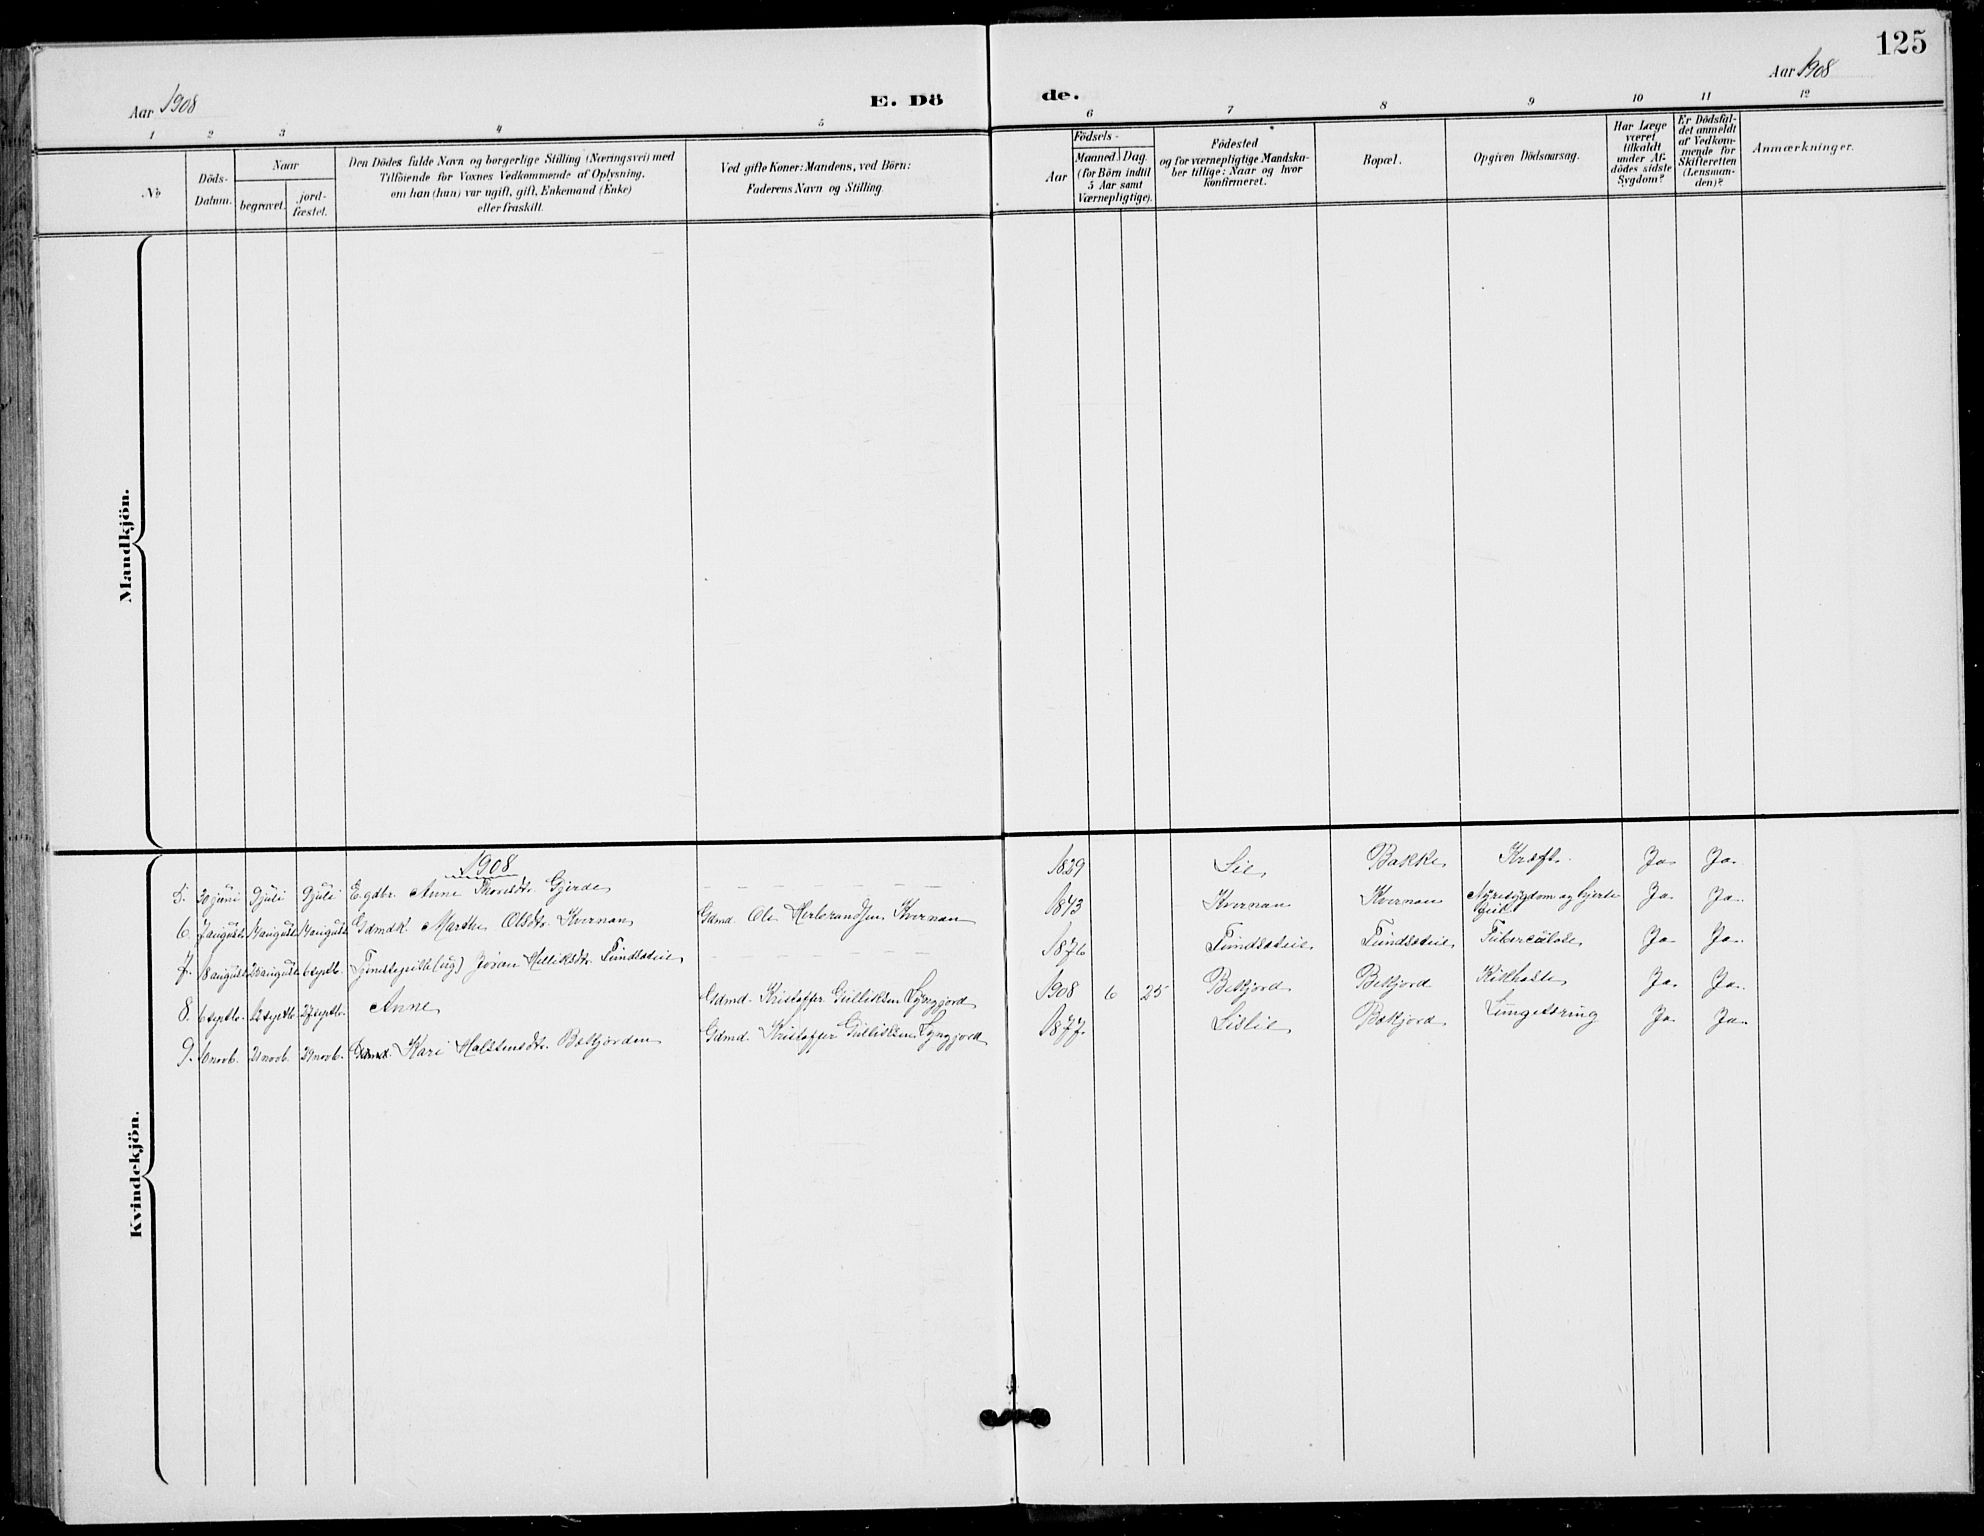 125
Aar 1908
Aar 1908
E. Dö de.
1 2 3 4 5 6 7 8 9 10 11 12
No
Döds-
Datum.
Naar
begravet.
jord-
fæstet.
Den Dödes fulde Navn og borgerlige Stilling (Næringsvei) med
Tilföiende for Voxnes Vedkommende af Oplysning,
om han (hun) var ugift, gift, Enkemand (Enke)
eller fraskilt.
Ved gifte Koner: Mandens, ved Börn:
Faderens Navn og Stilling.
Födsels-
Aar
Maaned. Dag.
(for Börn indtil
5 Aar samt
Værnepligtige).
Födested
og for værnepligtige Mandska-
ber tillige: Naar og hvor
konfirmeret.
Bopæl.
Opgiven Dödsaarsag.
Har Læge
været
tilkaldt
under Af-
dödes sidste
Sygdom?
Er Dödsfal-
det anmeldt
af Vedkom-
mende for
Skifteretten
(Lensman-
den)?
Anmærkninger.
Mandkjön.
Kvindekjön.
1908
5. 20 juni 9 juli 9 juli E. gdbr. Anne Gjerde – – – – – 1829 Lie Bakke Kræft. Ja Ja
6. 7 august 14 august 14 august Gdmdk. Marthe Olsdtr. Kvernan Gdmd. Ole Herbrandsen Kvernan 1843 Kvernan Kvernan Nyresygdom og hjerte
feil Ja Ja
7. 18 august 22 august 6 septb. Tjenestepike (ug) Jøran Fundsateie – – – – – 1876 Fundsateie Fundsateie Tuberculose Ja Ja
8. 6 septb. 12 septb. 27 septb. Anne Gdmd. Kristoffer Gulliksen Lyngjord 1908 6 25 Bekjord Bekjord Kikhoste Ja Ja
9. 16 novb. 21 novb. 29 novb. Kari Halstensdtr. Bekjorden Gdmd. Kristoffer Gulliksen Lyngjord 1877 Lislie Bekjord Lungetæring Ja Ja